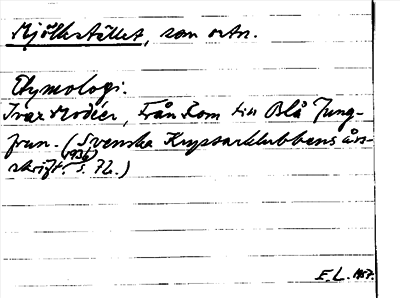 Mjölkstället, som ortn.
Etymologi.
Ivar Modéer, Från Rom till Blå Jung-
frun. (Svenska Kryssarklubbens års-
skrift. 1936 s. 72.)
E.L. 1957.